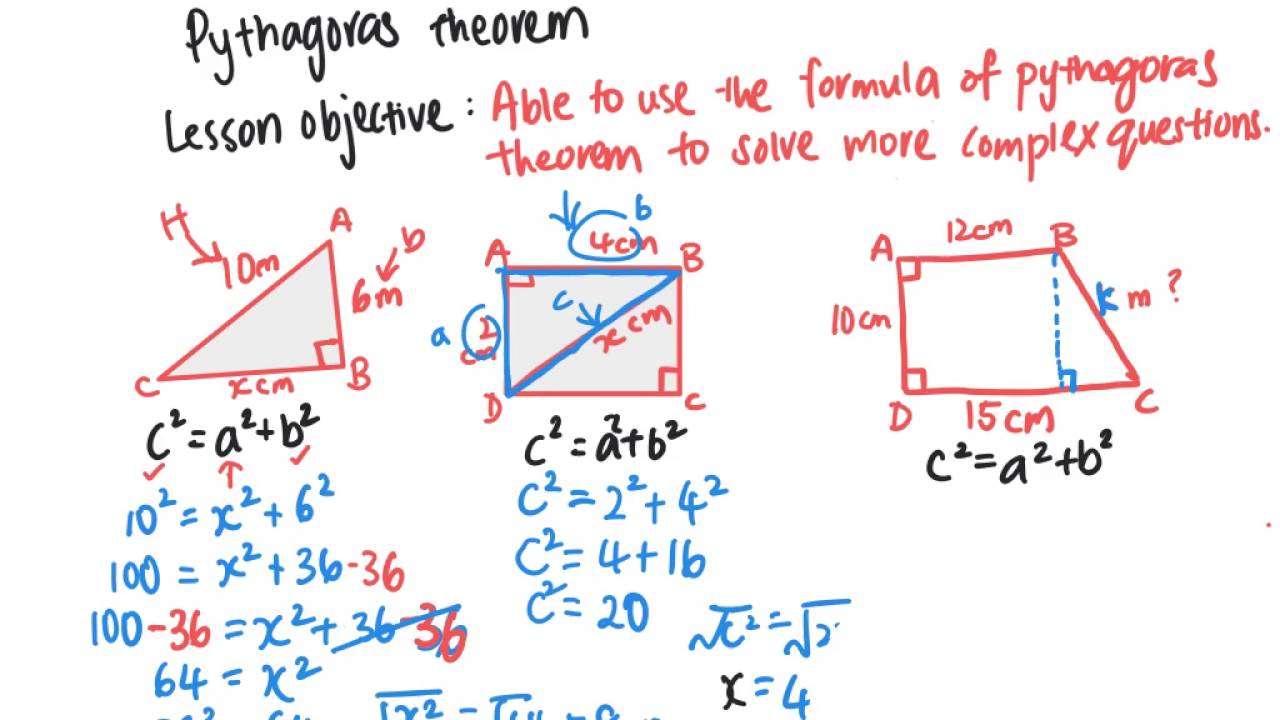 Pythagoras theorem
Lesson objective : Able to use the formula of pythagoras
theorem to solve more complex questions.
H
A
10m
b
6m
C
x cm
B
c² = a² + b²
10² = x² + 6²
100 = x² + 36 - 36
100 - 36 = x² + 36 - 36
64 = x²
b
A
4cm
B
c
a
2
cm
x cm
D
C
c² = a² + b²
c² = 2² + 4²
c² = 4 + 16
c² = 20
x = 4
12cm
A
B
10cm
k m ?
D
15cm
C
c² = a² + b²